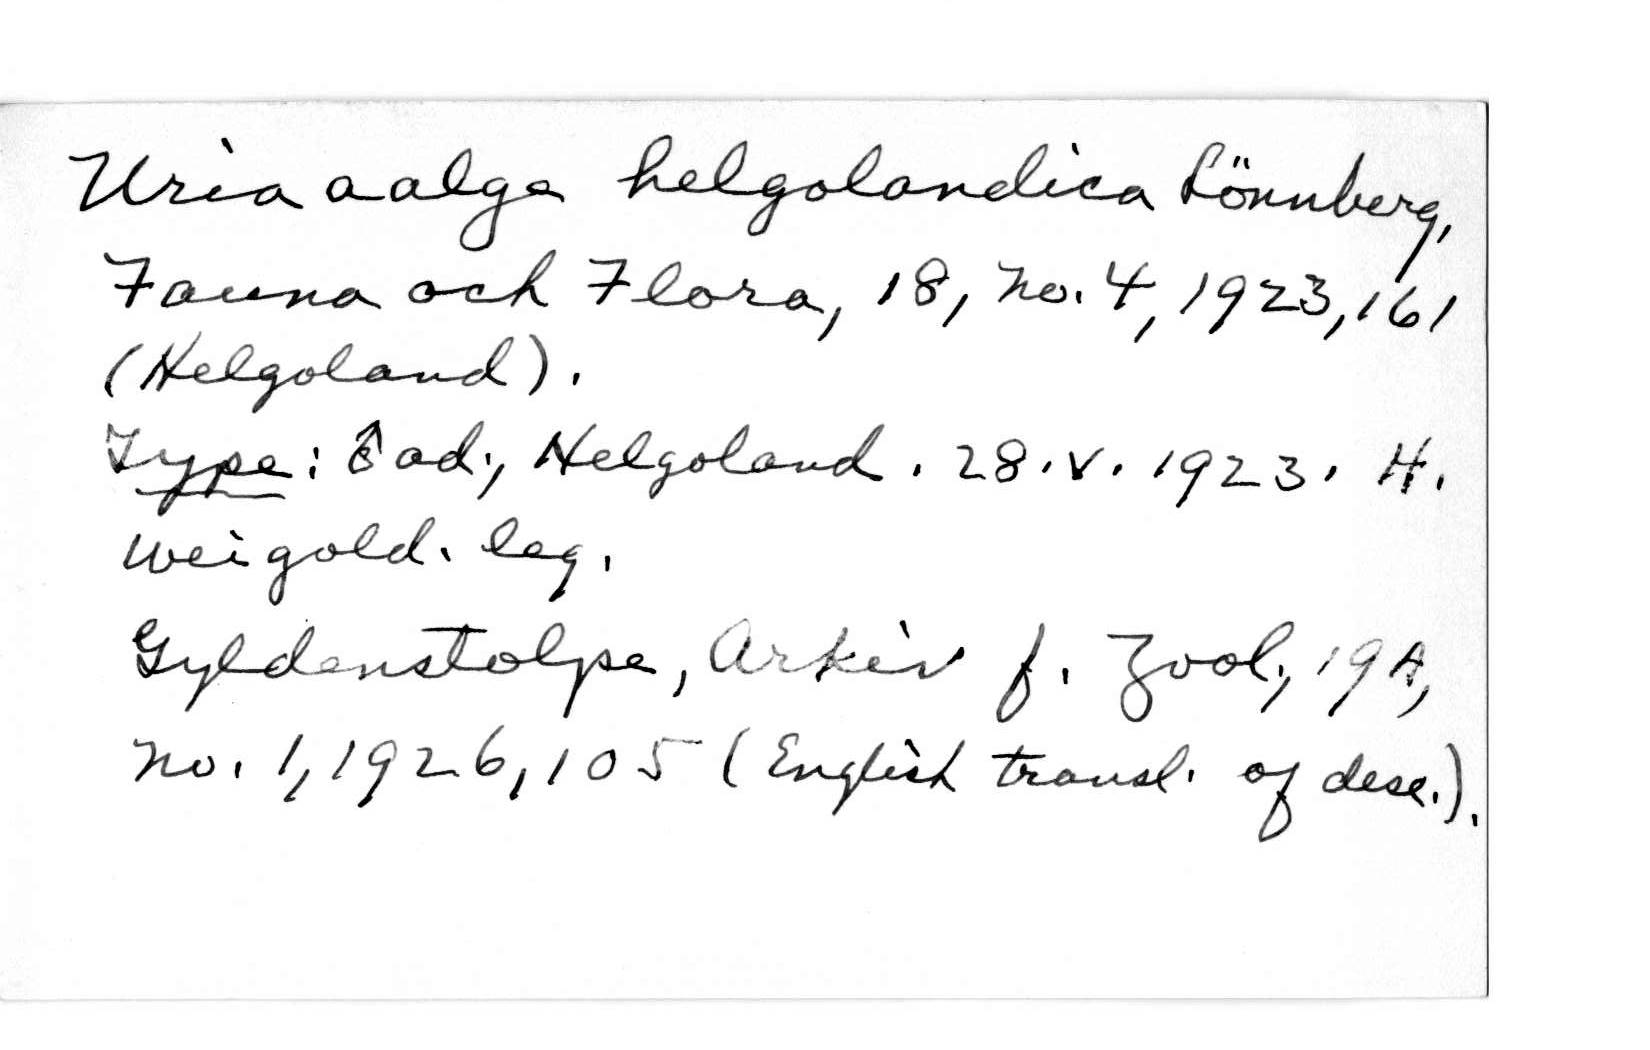 Uria aalge helgolandica Lönnberg,
Fauna och Flora, 18, no. 4, 1923, 161
(Helgoland).
Type: ♂ ad., Helgoland. 28.V.1923. H.
Weigold. leg.
Gyldenstolpe, Arkiv f. Zool., 19A,
no. 1, 1926, 105 (English transl. of desc.).